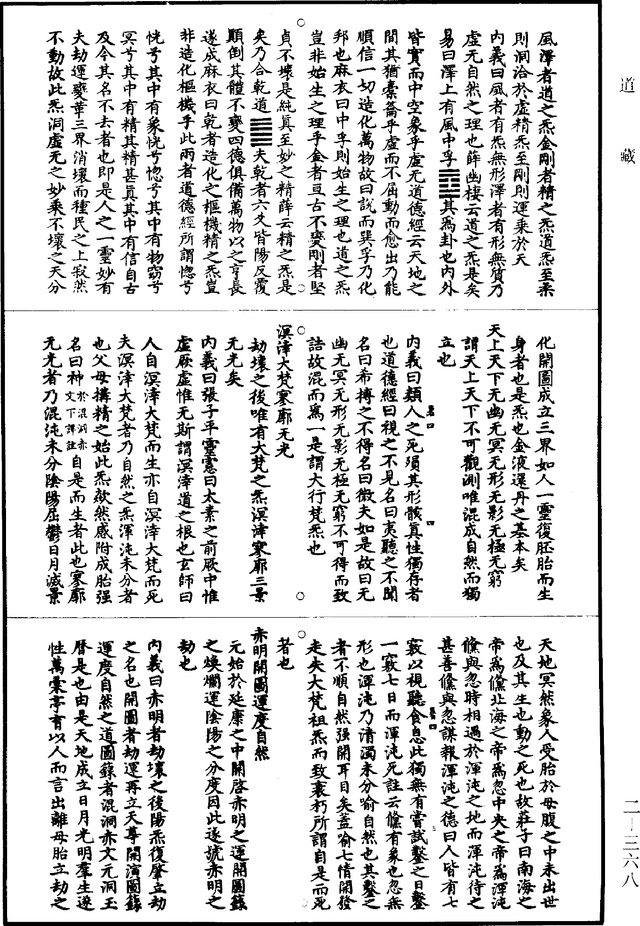 道藏
風澤者道之炁金剛者精之炁道炁至柔
則洞洽於虛精炁至剛則運乘於天
內義曰風者有炁無形澤者有形無質乃
虛无自然之理也薛幽棲云道之炁是矣
易曰澤上有風中孚䷼其為卦也內外
皆實而中空象乎虛无道德經云天地之
間其猶橐籥乎虛而不屈動而愈出乃能
順信一切造化萬物故曰說而巽孚乃化
邦也麻衣曰中孚則始生之理也道之炁
豈非始生之理乎金者亘古不變剛者堅
貞不壞是純真至妙之精薛云精之炁是
矣乃合乾道䷀夫乾者六爻皆陽反覆
顛倒其體不變四德俱備萬物以之亨長
遂成麻衣曰乾者造化之樞機精之炁豈
非造化樞機乎此兩者道德經所謂惚兮
恍兮其中有象恍兮惚兮其中有物窈兮
冥兮其中有精其精甚真其中有信自古
及今其名不去者也即是人之一靈妙有
夫劫運變革三界消壞而種民之上寂然
不動故此炁洞虛无之妙乘不壞之天分
化開圖成立三界如人一靈復胚胎而生
身者也是炁也金液還丹之基本矣
天上天下无幽无冥无形无影无極无窮
謂天上天下不可觀測唯混成自然而獨
立也
內義曰類人之死殞其形骸真性獨存者
也道德經曰視之不見名曰夷聽之不聞
名曰希搏之不得名曰微夫如是故曰无
幽无冥无形无影无極无窮不可得而致
詰故混而為一是謂大行梵炁也
溟涬大梵寥廓无光
劫壞之後唯有大梵之炁溟涬寥廓三景
无光矣
內義曰張子平靈憲曰太素之前厥中惟
虛厥虛惟无斯謂溟涬道之根也玄師曰
人自溟涬大梵而生亦自溟涬大梵而死
夫溟涬大梵者乃自然之炁渾沌未分者
也父母搆精之始此炁歘然感附成胎强
名曰神於混洞赤文下詳註自是而生者此也寥廓
无光者乃混沌未分陰陽屈鬱日月滅景
天地冥然象人受胎於母腹之中未出世
也及其生也動之死也故莊子曰南海之
帝為儵北海之帝為忽中央之帝為渾沌
儵與忽時相遇於渾沌之地而渾沌待之
甚善儵與忽謀報渾沌之德曰人皆有七
竅以視聽食息此獨無有嘗試鑿之日鑿
一竅七日而渾沌死註云儵有象也忽無
形也渾沌乃清濁未分喻自然也其鑿之
者不順自然强開耳目矣蓋喻七情開發
走失大梵祖炁而致衰朽所謂自是而死
者也
赤明開圖運度自然
元始於延康之中開啓赤明之運開圖籙
之煥爛運陰陽之分度因此遂號赤明之
劫也
內義曰赤明者劫壞之後陽炁復肇立劫
之名也開圖者劫運再立天尊開演圖籙
運度自然之道圖籙者混洞赤文元洞玉
曆是也由是天地成立日月光明羣生遂
性萬彙亭育以人而言出離母胎立劫之
二—三六八